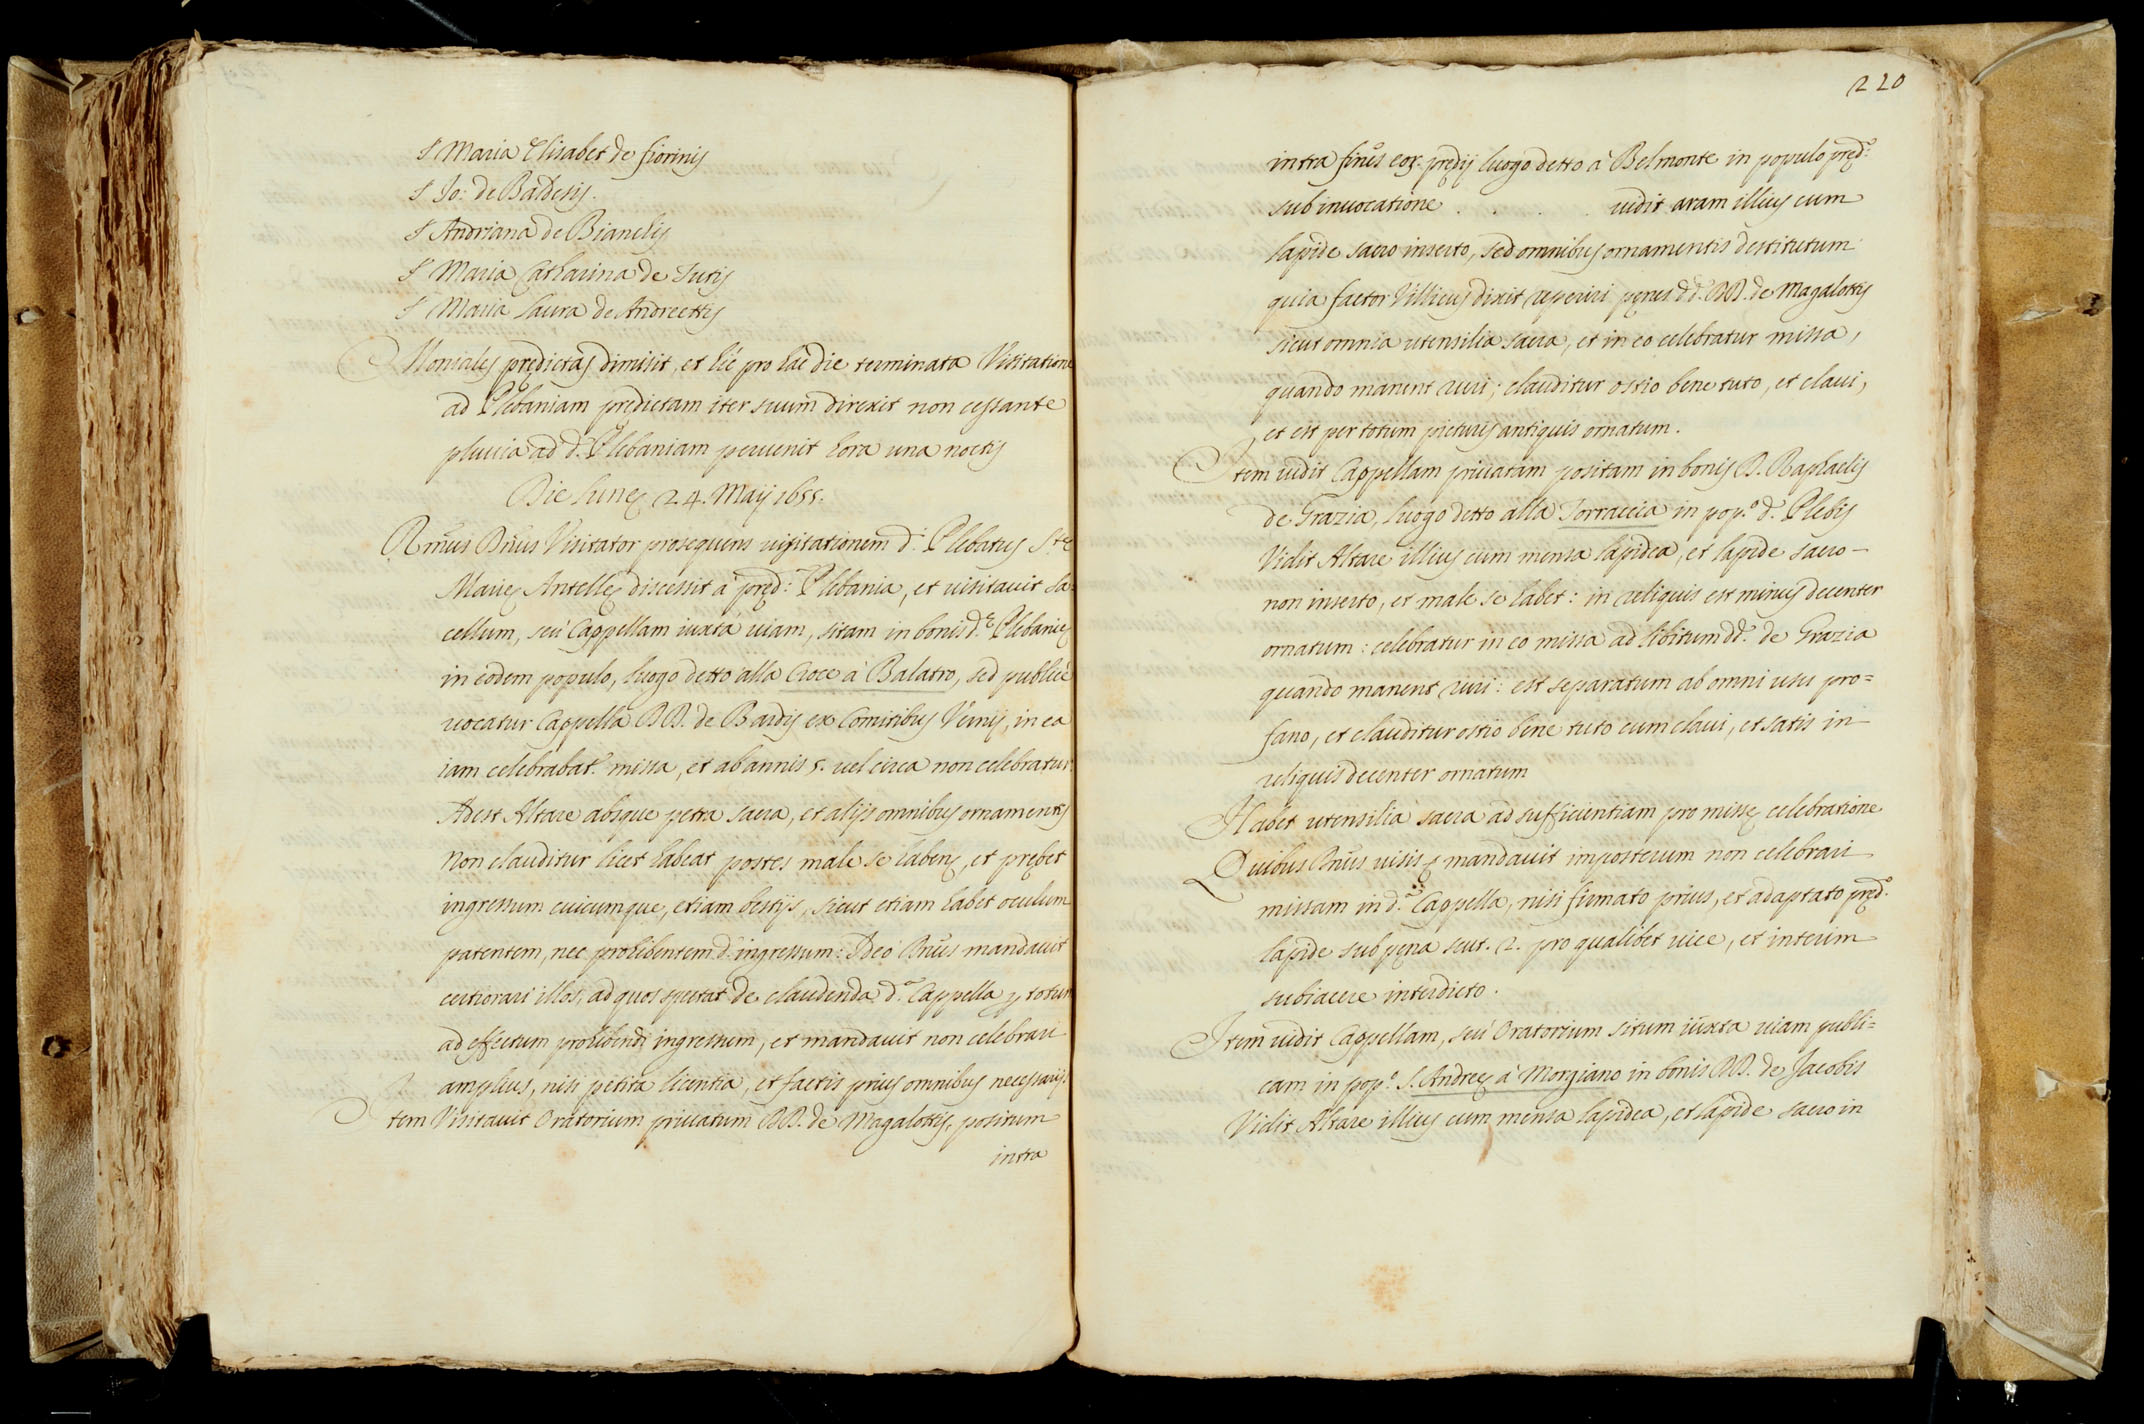 S Maria Elisabet de fiorinis
S Jo: de Baldesis.
S Andriana de Bianchis
S Maria Catharina de Jutis
S Maria Laura de Andreettis
Moniales prędictas dimisit, et hic pro hac die terminata Visitatione
ad Plebaniam prędictam iter suum direxit non cessante
pluvia ad d. Plebaniam pervenit hora una noctis
Die Lunę 24. Maij 1655.
Rmus Dnus Visitator prosequens visitationem d. Plebatus Stę
Marię Antellę discessit à pręd: Plebania, et visitavit sa=
cellum, seù Cappellam iuxta viam, sitam in bonis d.ę Plebanię
in eodem populo, luogo detto alla Croce à Balatro, sed publicè
vocatur Cappella DD. de Bardis ex Comitibus Vernij, in ea
iam celebrabat. missa, et ab annis 5. vel circa non celebratur.
Adest Altare absque petra sacra, et alijs omnibus ornamentis
Non clauditur licet habeat postes male se habens, et prębet
ingressum cuicumque, etiam bestijs, sicut etiam habet oculum
patentem, nec prohibentem d. ingressum: Ideò Dnus mandavit
certiorari illos, ad quos spectat de claudenda d.a Cappella p totum
ad effectum prohibendi ingressum, et mandavit non celebrari
amplius, nisi petita licentia, et factis prius omnibus necessarijs
Item Visitavit Oratorium privatum DD. de Magalottis, positum
intra
220
intra fines eor. prędij luogo detto à Belmonte in populo pręd.o
sub invocatione . . . . vidit aram illius cum
lapide sacro inserto, sed omnibus ornamentis destitutum
quia factor Villicus dixit reperiri penes dd. DD. de Magalottis
sicut omnia utensilia sacra, et in eo celebratur missa,
quando manent ruri; clauditur ostio bene tuto, et clavi,
et est per totum picturis antiquis ornatum.
Item vidit Cappellam privatam positam in bonis D. Raphaelis
de Grazia, luogo detto alla Torraccia in pop.o d. Plebis
Vidit Altare illius cum mensa lapidea, et lapide sacro
non inserto, et male se habet: in reliquis est minus decenter
ornatum: celebratur in eo missa ad libitum dd. de Grazia
quando manent ruri: est separatum ab omni usu pro=
fano, et clauditur ostio bene tuto cum clavi, et satis in
reliquis decenter ornatum
Habet utensilia sacra ad sufficientiam pro missę celebratione
Quibus Dnus visis mandavit imposterum non celebrari
missam in d.a Cappella, nisi firmato prius, et adaptato pręd.o
lapide sub pęna scut. 2. pro qualibet vice, et interim
subiacere interdicto.
Item vidit Cappellam, seù Oratorium situm iuxta viam publi=
cam in pop.o S. Andreę à Morgiano in bonis DD. de Jacobis
Vidit Altare illius cum mensa lapidea, et lapide sacro in